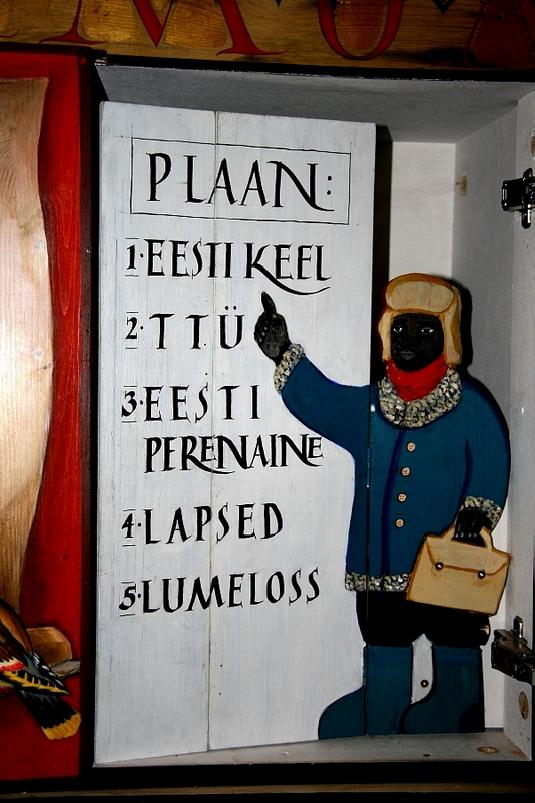 PLAAN:
1. EESTI KEEL
2. TTÜ
3. EESTI
PERENAINE
4. LAPSED
5. LUMELOSS